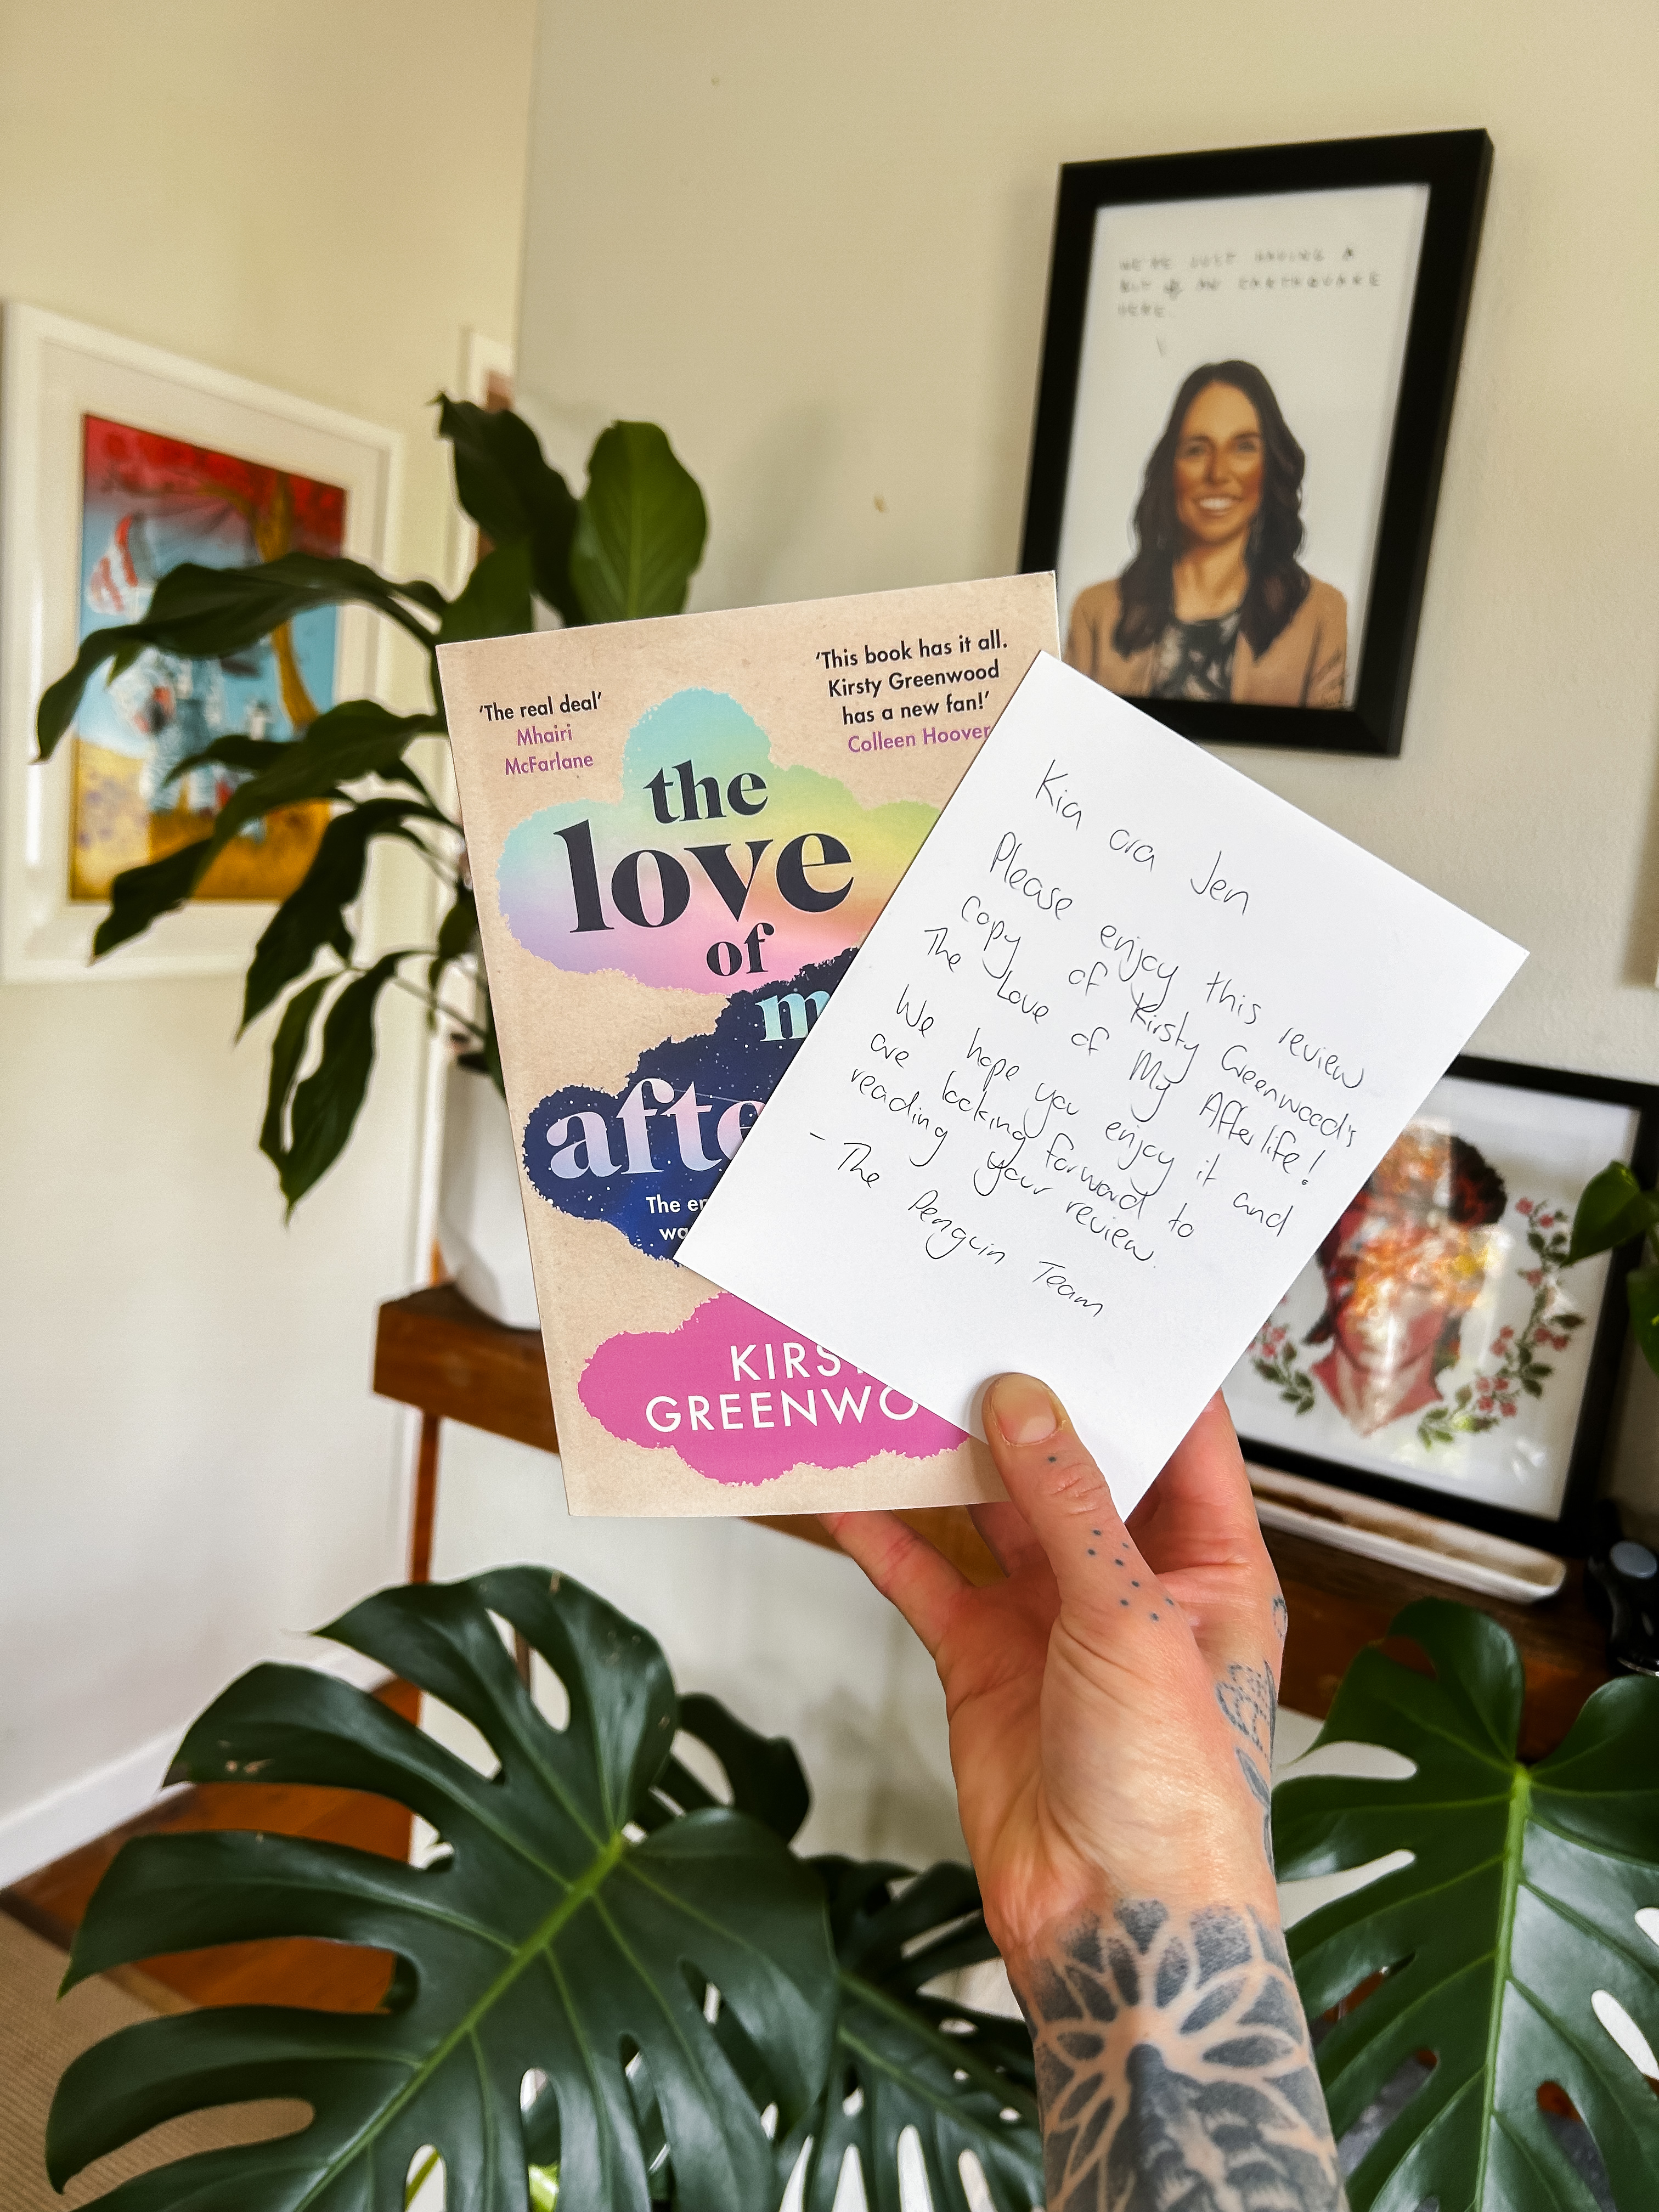 WE'RE JUST HAVING A
BIT OF AN EARTHQUAKE
HERE
'The real deal'
Mhairi
McFarlane
'This book has it all.
Kirsty Greenwood
has a new fan!'
Colleen Hoover
the
love
of
m
afte
The en
wa
KIRST
GREENWO
Kia ora Jen
Please enjoy this review
copy of Kirsty Greenwood's
The Love of My Afterlife!
We hope you enjoy it and
are looking forward to
reading your review.
- The Penguin Team